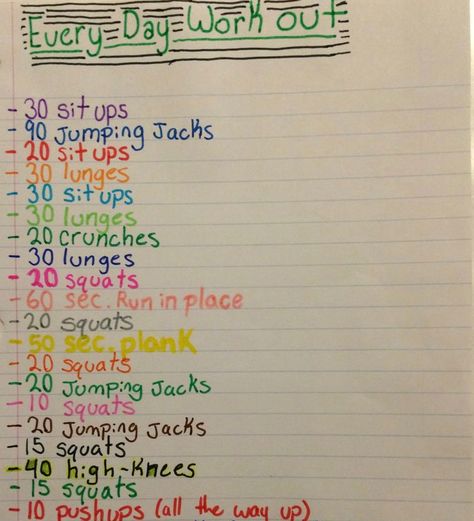 Every Day Work out
- 30 sit ups
- 90 Jumping Jacks
- 20 sit ups
- 30 lunges
- 30 sit ups
- 30 lunges
- 20 crunches
- 30 lunges
- 20 squats
- 60 sec. Run in place
- 20 squats
- 50 sec. plank
- 20 squats
- 20 Jumping Jacks
- 10 squats
- 20 Jumping Jacks
- 15 squats
- 40 high-knees
- 15 squats
- 10 pushups (all the way up)